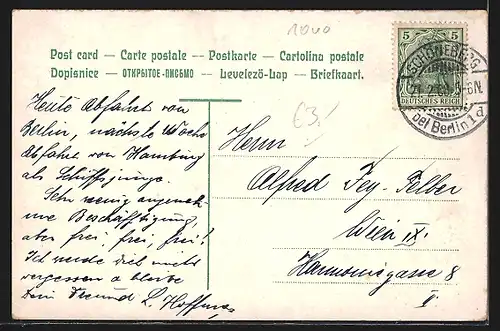 1040
Post card — Carte postale — Postkarte — Cartolina postale
Dopisnice — ОТКРЫТОЕ-ПИСЬМО — Levelező-Lap — Briefkaart.
5 5
DEUTSCHES REICH
SCHÖNEBERG
5-6N.
bei Berlin 1d
€3.
Heute Abfahrt von
Berlin, nächste Woche
Abfahrt von Hamburg
als Schiffsjunge.
Sehr wenig angeneh-
me Beschäftigung,
aber frei, frei, frei!
Ich werde dich nicht
vergessen u bleibe
Dein Freund L. Hoffman
Herrn
Alfred Fey-Felber
Wien IX.
Harmoniegasse 8